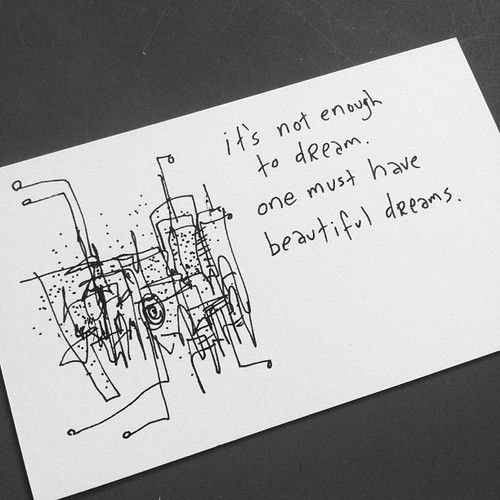 it's not enough
to dream.
one must have
beautiful dreams.